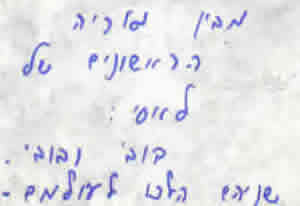 מבין מוריה
הראשונים של
לאסי :
בובי ובובי.
שניהם הלכו לעולמם -